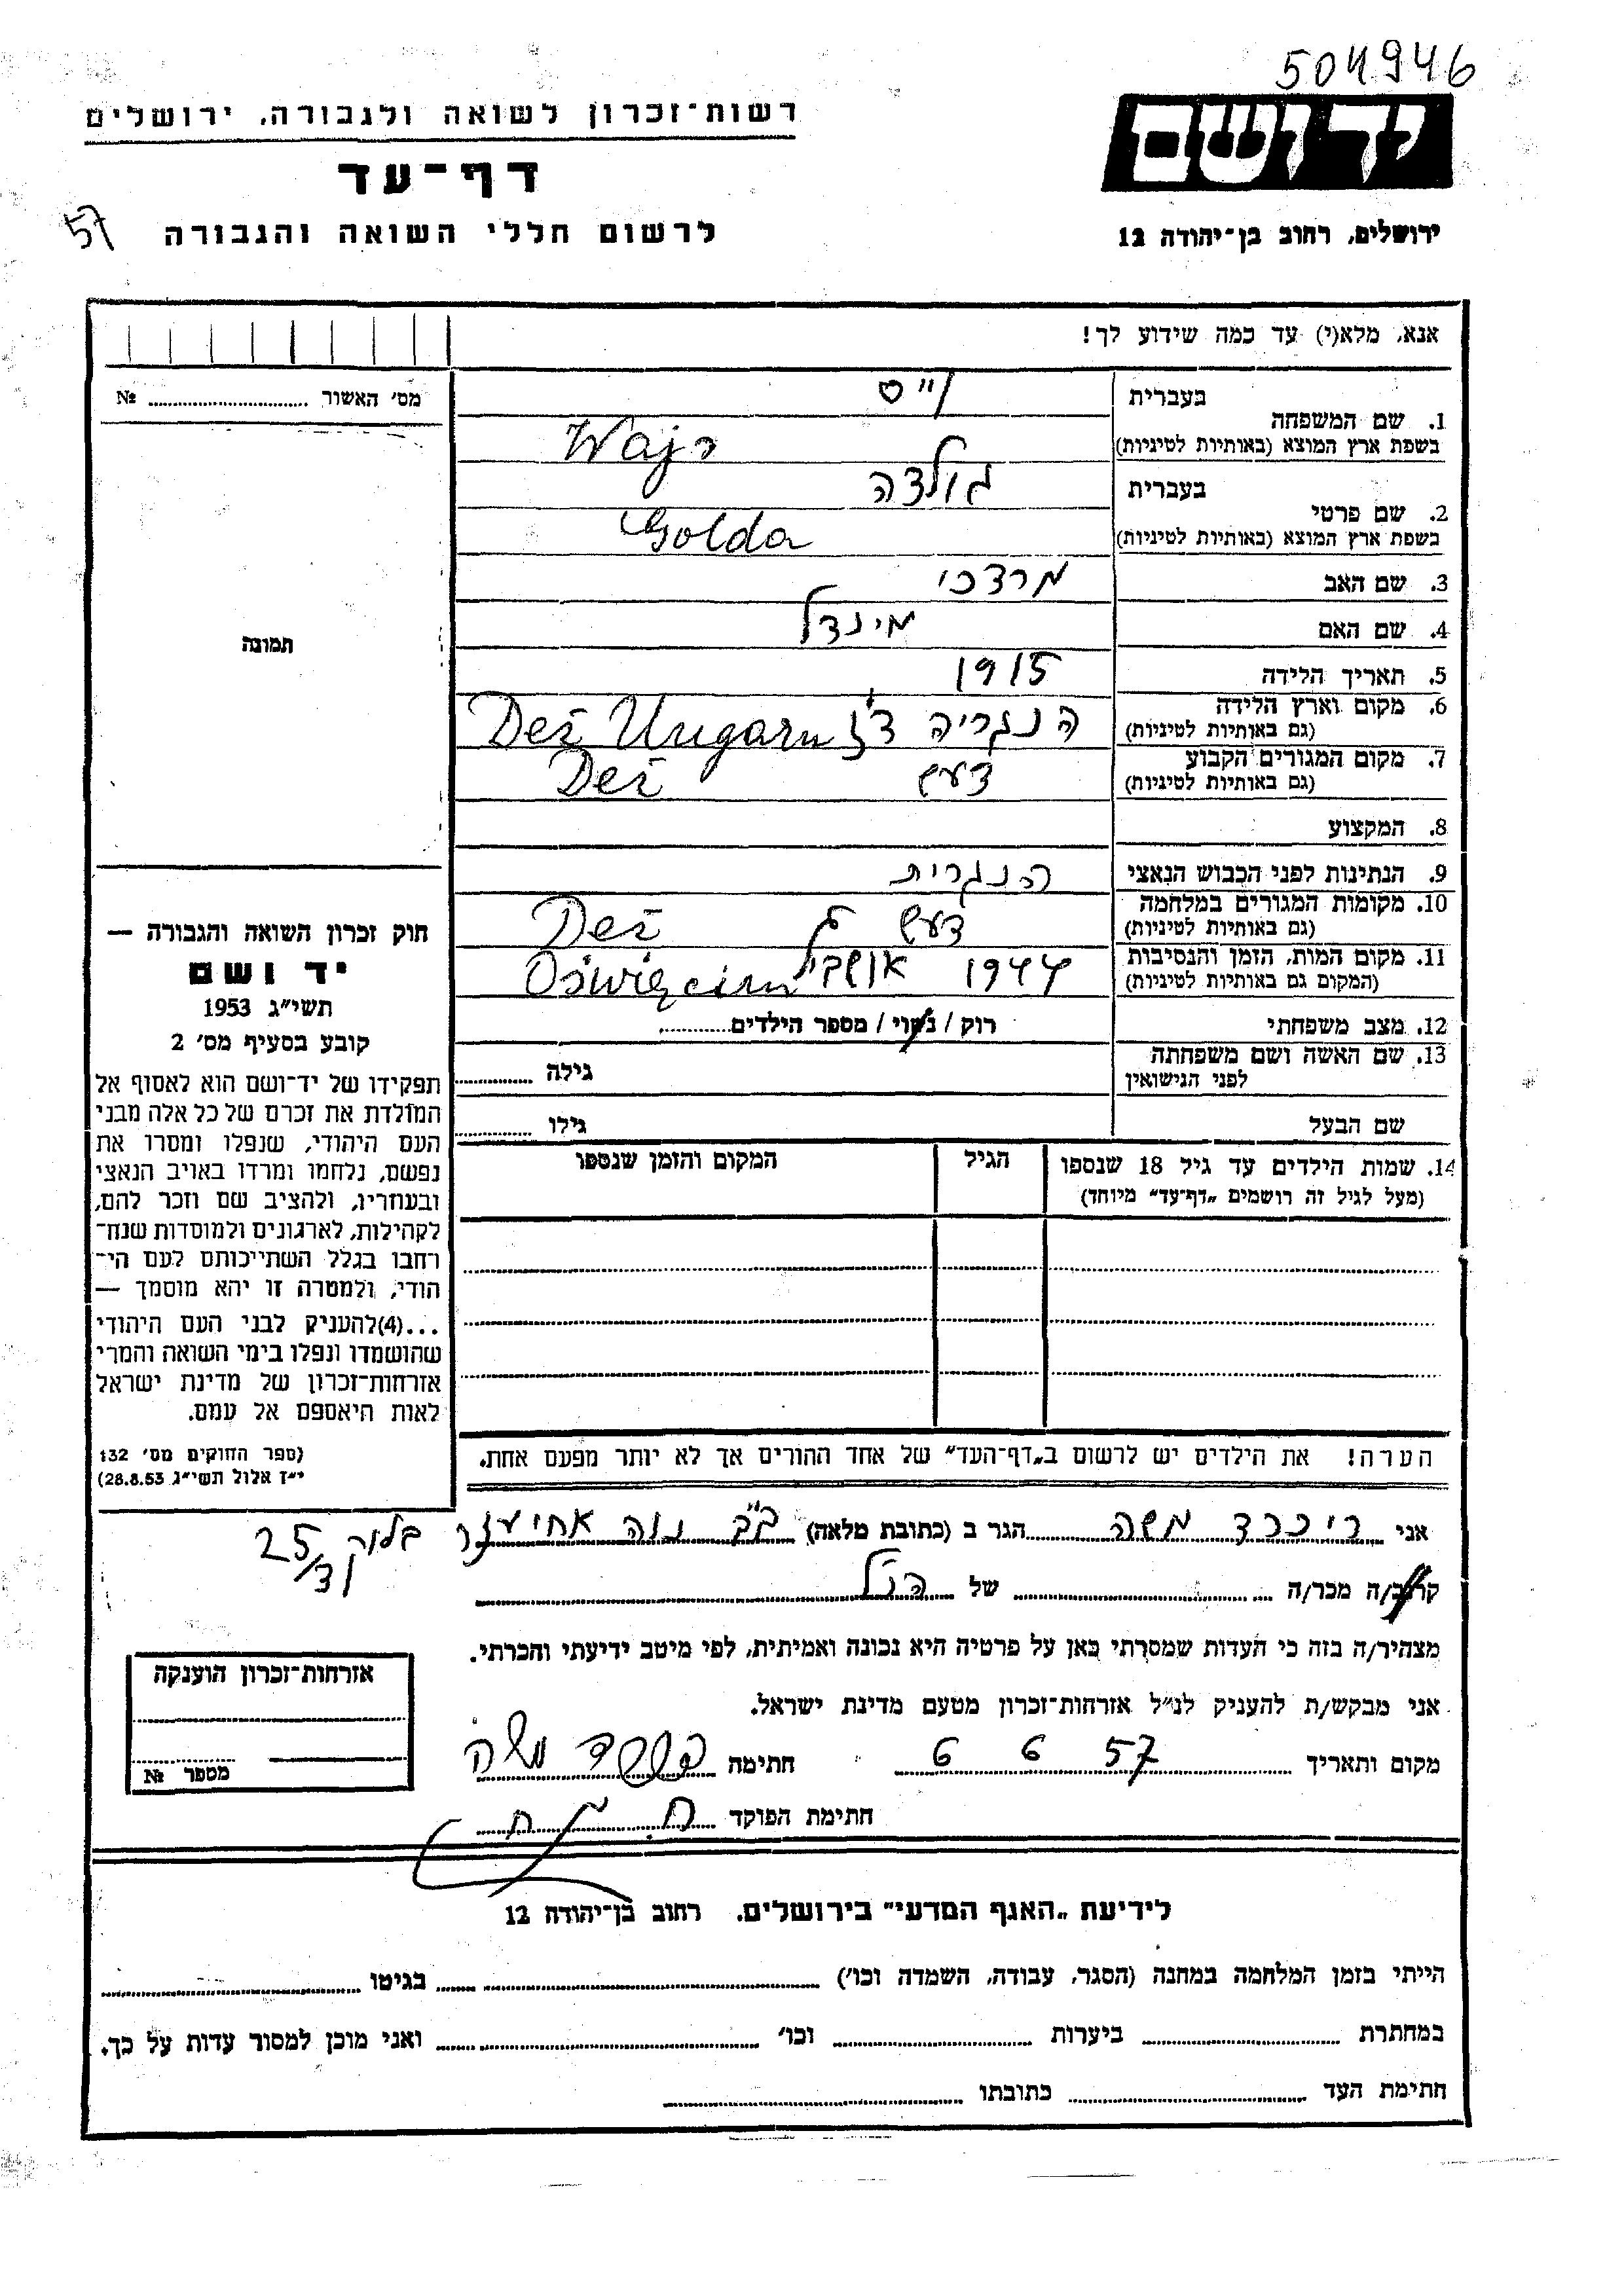 504946
רשות-זכרון לשואה ולגבורה, ירושלים
ידושם
דף-עד
לרשום חללי השואה והגבורה
57
ירושלים, רחוב בן-יהודה 12
אנא, מלא(י) עד כמה שידוע לך!
מס׳ האשור № 
בעברית
1. שם המשפחה
בשפת ארץ המוצא (באותיות לטיניות) Wajs
בעברית גולדה
2. שם פרטי
בשפת ארץ המוצא (באותיות לטיניות) Golda
3. שם האב מרדכי
4. שם האם מינדל
5. תאריך הלידה 1915
6. מקום וארץ הלידה
(גם באותיות לטיניות) הנגריה דז׳ Deż Ungarn
7. מקום המגורים הקבוע
(גם באותיות לטיניות) דעש Deż
8. המקצוע
9. הנתינות לפני הכבוש הנאצי הנגרית
10. מקומות המגורים במלחמה
(גם באותיות לטיניות) דעש Deż
11. מקום המות, הזמן והנסיבות
(המקום גם באותיות לטיניות) 1944 Oświęcim
12. מצב משפחתי רוק / נשוי / מספר הילדים
13. שם האשה ושם משפחתה
לפני הנישואין גילה
שם הבעל גילו
14. שמות הילדים עד גיל 18 שנספו הגיל המקום והזמן שנספו
(מעל לגיל זה רושמים „דף-עד״ מיוחד)
הערה! את הילדים יש לרשום ב„דף-העד״ של אחד ההורים אך לא יותר מפעם אחת.
תמונה
חוק זכרון השואה והגבורה —
יד ושם
תשי״ג 1953
קובע בסעיף מס׳ 2
תפקידו של יד-ושם הוא לאסוף אל
המולדת את זכרם של כל אלה מבני
העם היהודי, שנפלו ומסרו את
נפשם, נלחמו ומרדו באויב הנאצי
ובעוזריו, ולהציב שם וזכר להם,
לקהילות, לארגונים ולמוסדות שנח-
רחבו בגלל השתייכותם לעם הי-
הודי, ולמטרה זו יהא מוסמך —
...(4)להעניק לבני העם היהודי
שהושמדו ונפלו בימי השואה והמרי
אזרחות-זכרון של מדינת ישראל
לאות היאספם אל עמם.
(ספר החוקים מס׳ 132
י״ז אלול תשי״ג 28.8.53)
אני ריכרד משה הגר ב (כתובת מלאה) ב״ב נוה אחיעזר בלוק 25/31
קרוב/ה מכר/ה של הנ״ל
מצהיר/ה בזה כי העדות שמסרתי כאן על פרטיה היא נכונה ואמיתית, לפי מיטב ידיעתי והכרתי.
אני מבקש/ת להעניק לנ״ל אזרחות-זכרון מטעם מדינת ישראל.
מקום ותאריך 6 6 57 חתימה
חתימת הפוקד
אזרחות-זכרון הוענקה
מספר №
לידיעת „האגף המדעי״ בירושלים, רחוב בן-יהודה 12
הייתי בזמן המלחמה במחנה (הסגר, עבודה, השמדה וכו׳) בגיטו
במחתרת ביערות וכו׳ ואני מוכן למסור עדות על כך.
חתימת העד כתובתו